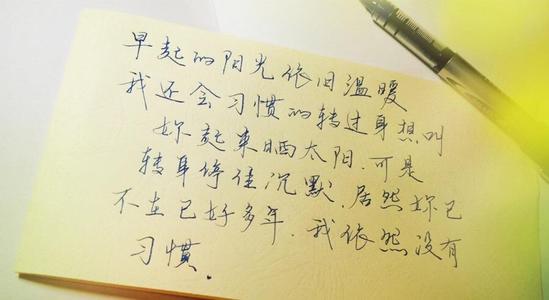 早起的阳光依旧温暖
我还会习惯的转过身想叫
妳起来晒太阳.可是
转身停住沉默.居然妳已
不在已好多年.我依然没有
习惯.